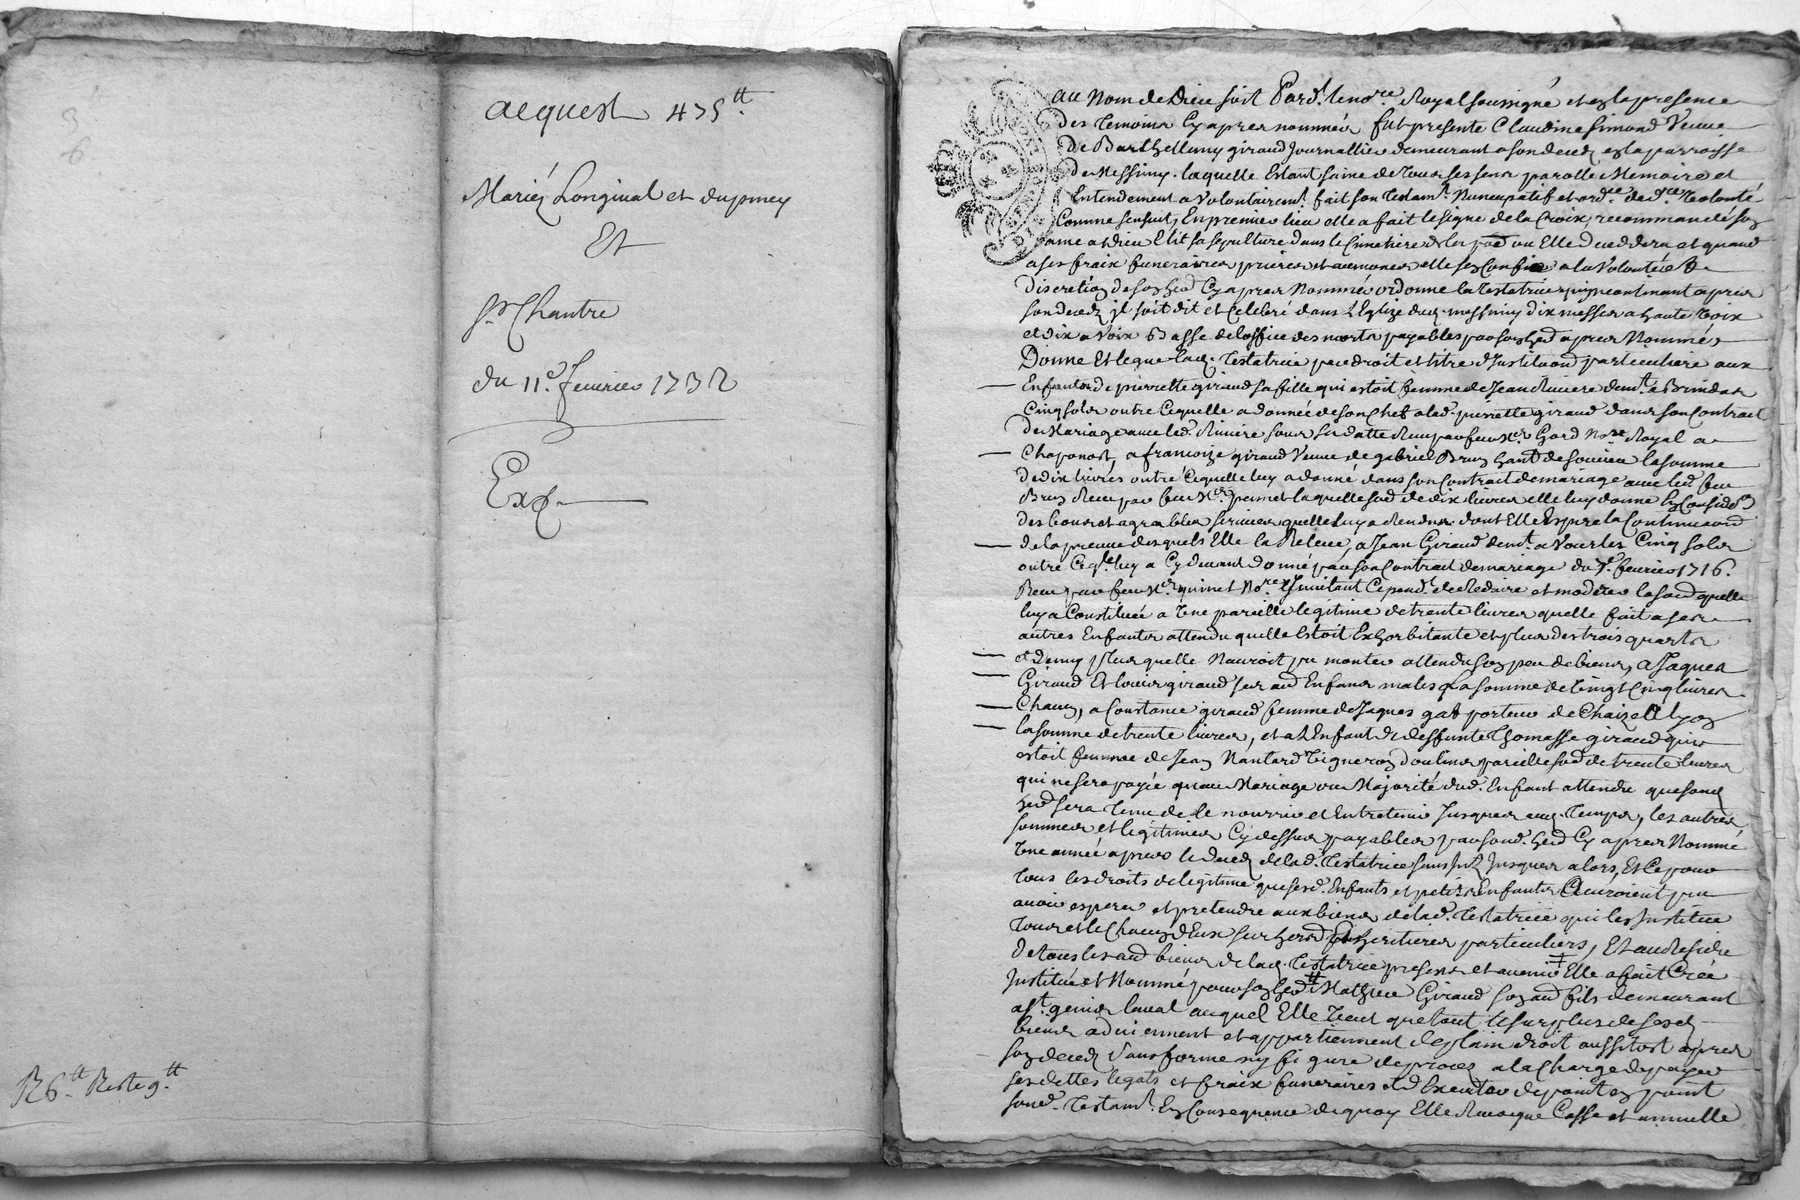 acquest 475ᵗᵗ
Mariez Longinal et dupmey
Et
Sʳ Chantre
du 11ᵉ feurier 1732
Exp.
R 6ᵗᵗ Reste 9ᵗᵗ
au Nom de Dieu soit Pard.ᵗ le noʳᵉ Royal soussigné et en la presence
des temoins cy apres nommés fut presente Claudine Simond Veuve
de Barthellemy giraud Journallier demeurant a son decedz en la parroisse
de Messimy. laquelle Estant saine de tous ses sens parolle Memoire et
Entendement a Volontairemᵗ fait son testamᵗ Nuncupatif et ordʳᵉ de dʳᵉ Volonté
Comme sensuit, En premier lieu elle a fait le signe de la Croix, recommandé son
ame a dieu Elit sa sepulture dans le Cimetiere de la ou Elle decedera et quand
a ses fraix funeraires prieres et aumones elle se confie a la Volonté &
discretion de son herᵈ Cy apres Nommé ordonne la testatrice qu'incontinant apres
son decedz il soit dit et Celebré dans l'Eglize dud. messimy dix messes a haute Voix
et dix a Voix Basse de loffice des morts payables par son herᵈ apres Nommé
Donne Et legue lad. testatrice par droit et titre d'Instituᵒⁿ particuliere aux
Enfants de pierrette giraud sa fille qui estoit femme de Jean Riviere demᵗ a Brindas
Cinq sols outre Ce quelle a donnée de son Chef a lad. pierrette giraud dans son Contrat
de Mariage avec led. Riviere sous sa datte Receu par feu Mᵉ Gord noʳᵉ Royal a
Chaponost, a francoize giraud Veuve de gabriel Brun hant de soucieu la somme
de dix livres outre Ce quelle luy a donné dans son Contrat de mariage avec led. feu
Brun Receu par feu Mᵉ pinet laquelle somᵉ de dix livres elle luy donne En Considᵒⁿ
des bons et agreables services quelle luy a Rendus dont Elle Espere la Continuaᵒⁿ
de la preuve desquels Elle la Releve, a Jean Giraud demᵗ a Vourles Cinq sols
outre Ce qle luy a Cy devant donné par son Contrat de mariage du 7ᵉ feurier 1716.
Receu par feu Mᵉ pinet Noʳᵉ Ismitant Cepend.ᵗ de Reduire et moderer la somᵉ quelle
luy a Constituée a Une pareille legitime de trente livres quelle fait a ses
autres Enfants attendu quelle Estoit Exhorbitante et plus des trois quarts
et demy plus quelle Nauroit pu monter attendu son peu de biens, a Jaques
Giraud Et Louis giraud ses aud Enfans males La somme de Vingt Cinq livres
Chacun, a Constance giraud femme de Jaques gat porteur de Chaize a Lyon
la somme de trente livres, et a L'Enfant de deffunte Thomasse giraud qui
estoit femme de Jean Nantard Vigneron d'oulins pareille somᵉ de trente livres
qui ne sera payé quau Mariage ou Majorité dud. Enfant attendu que sond.
herᵈ sera tenu de le nourrir et Entretenir Jusques aud. temps, les autres
sommes et legitimes Cy dessus payables par sond. herᵈ Cy apres Nommé
Une année apres le decedz de lad. testatrice sans Intᵗ Jusques alors, Et Ce pour
tous les droits de legitime que sesd. Enfants et petits Enfants auroient pu
avoir esperer et pretendre aux biens de lad. testatrice qui les Institue
tous et le Chacun d'Eux ses heritiers particuliers, Et au Residu
de tous les aud biens de lad. testatrice presens et avenir Elle a fait Creé
Institué et Nommé pour son herᵈ Mathieu Giraud son aud fils demeurant
a Sᵗ. genis laval auquel Elle Veut que tout le surplus de sesd.
biens adviennent et appartiennent de plain droit aussitost apres
son decedz sans forme ny figure de proces a la Charge de payer
ses dettes legats et fraix funeraires et d'Executer de point en point
sond. testamᵗ. En Consequence de quoy Elle Revoque Casse et annulle